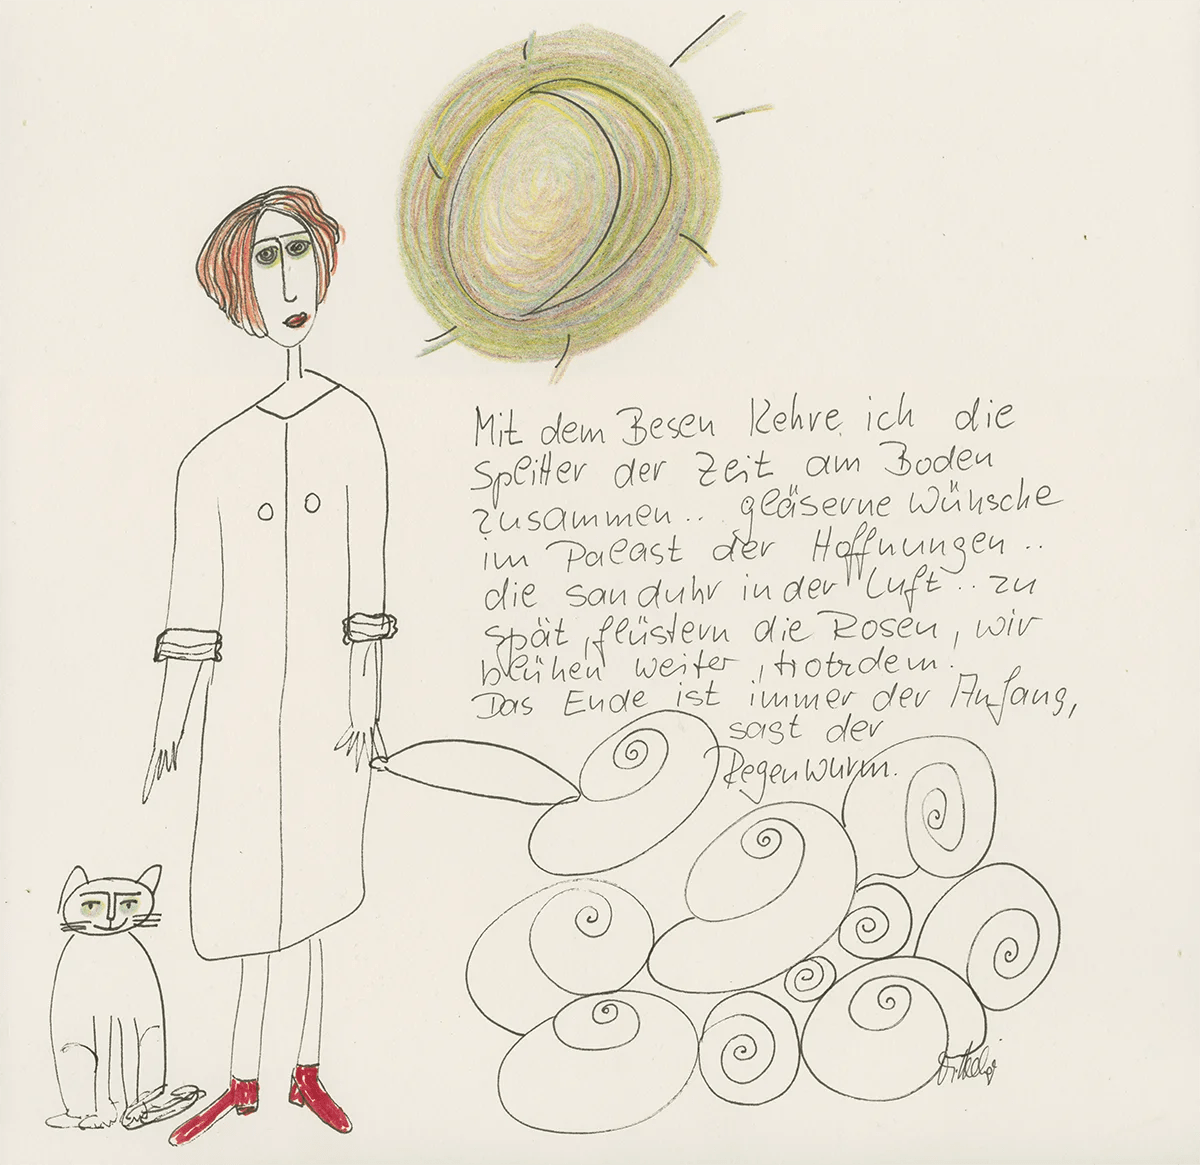 Mit dem Besen Kehre ich die
Splitter der Zeit am Boden
zusammen.. gläserne Wünsche
im Palast der Hoffnungen..
die Sanduhr in der Luft.. zu
spät, flüstern die Rosen, wir
blühen weiter, trotzdem.
Das Ende ist immer der Anfang,
sagt der
Regenwurm.